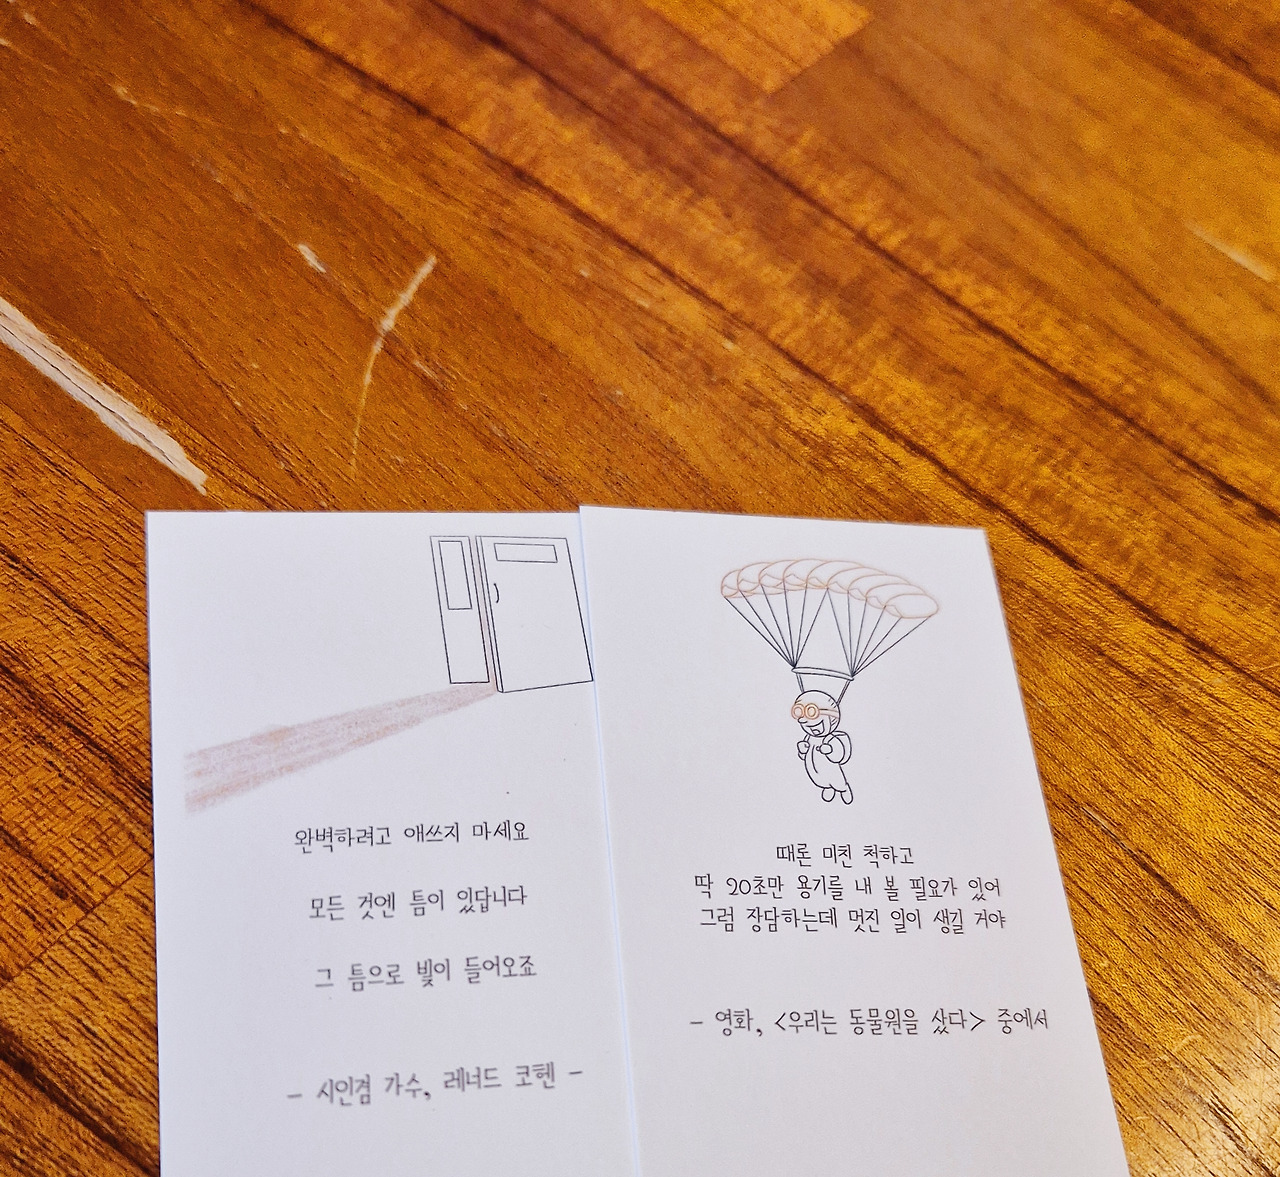 완벽하려고 애쓰지 마세요
모든 것엔 틈이 있답니다
그 틈으로 빛이 들어오죠
- 시인겸 가수, 레너드 코헨 -
때론 미친 척하고
딱 20초만 용기를 내 볼 필요가 있어
그럼 장담하는데 멋진 일이 생길 거야
- 영화, <우리는 동물원을 샀다> 중에서